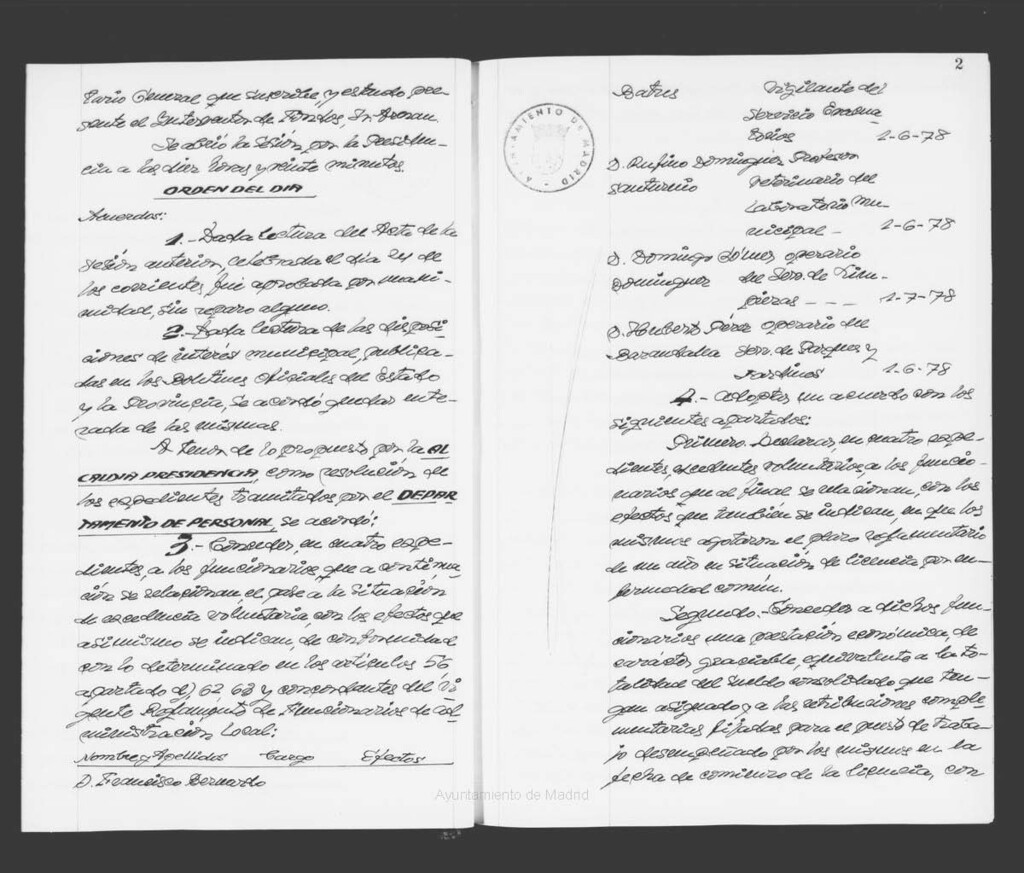 tario General que suscribe, y estando pre-
sente el Interventor de Fondos, Sr.
Se abrió la sesión por la Presiden-
cia a las diez horas y veinte minutos.
ORDEN DEL DIA
Acuerdos:
1.- Dada lectura del Acta de la
sesión anterior, celebrada el día 24 de
los corrientes, fue aprobada por unani-
midad, sin reparo alguno.
2.- Dada lectura de las disposi-
ciones de interés municipal, publica-
das en los Boletines Oficiales del Estado
y la Provincia, se acordó quedar ente-
rada de las mismas.
A tenor de lo propuesto por la AL
CALDIA PRESIDENCIA, como resolución de
los expedientes tramitados por el DEPAR
TAMENTO DE PERSONAL, se acordó:
3.- Conceder, en cuatro expe-
dientes, a los funcionarios que a continua-
ción se relacionan, el pase a la situación
de excedencia voluntaria, con los efectos que
asimismo se indican, de conformidad
con lo determinado en los artículos 56
apartado d), 62 63 y concordantes del Vi
gente Reglamento de Funcionarios de Ad-
ministración Local:
Nombre y Apellidos Cargo Efectos
D. Francisco Bernardo
2
AYUNTAMIENTO DE MADRID
Vigilante del
Servicio
1-6-78
D. Rufino Dominguez Profesor
Santurnio Veterinario del
Laboratorio Mu-
nicipal - 1-6-78
D. Domingo Gómez operario
Dominguez del Serv. de Lim-
piezas - - - 1-7-78
D. Hubert Pérez operario del
Serv. de Parques y
Jardines 1-6-78
4.- Adoptar un acuerdo con los
siguientes apartados:
Primero.- Declarar, en cuatro expe-
dientes, excedentes voluntarios, a los funcio-
narios que al final se relacionan, con los
efectos que también se indican, en que los
mismos agotaron el plazo reglamentario
de un año en situación de licencia por en-
fermedad común.
Segundo.- Conceder a dichos fun-
cionarios una prestación económica, de
carácter graciable, equivalente a la to-
talidad del sueldo consolidado que ten-
gan asignado y a las retribuciones comple
mentarias fijadas para el puesto de traba-
jo desempeñado por los mismos en la
fecha de comienzo de la licencia, con
Ayuntamiento de Madrid